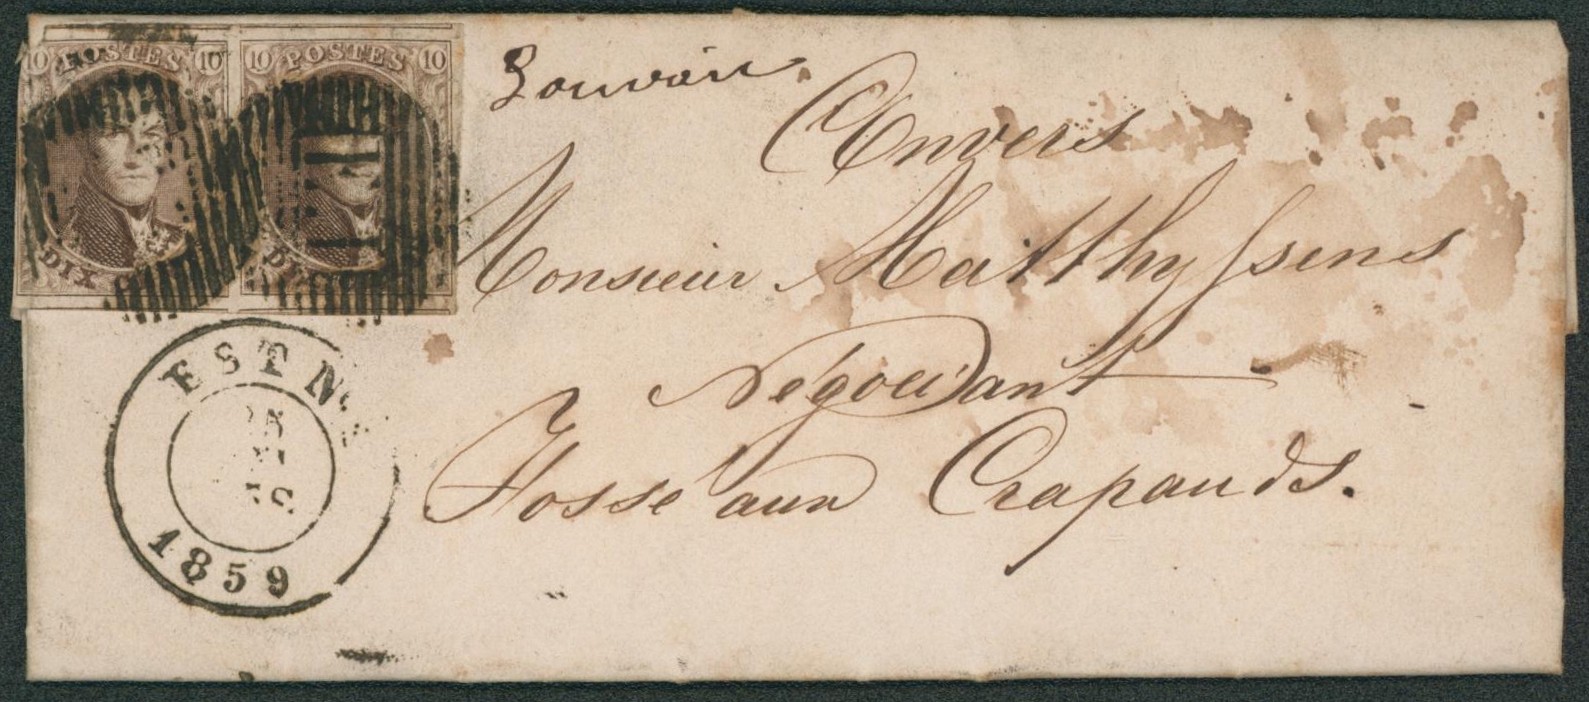 10 POSTES 10 10 POSTES 10
Louvain.
Anvers
Monsieur Matthyssens
Négociant
Fosse aux Crapauds.
DIX
EST N
1859